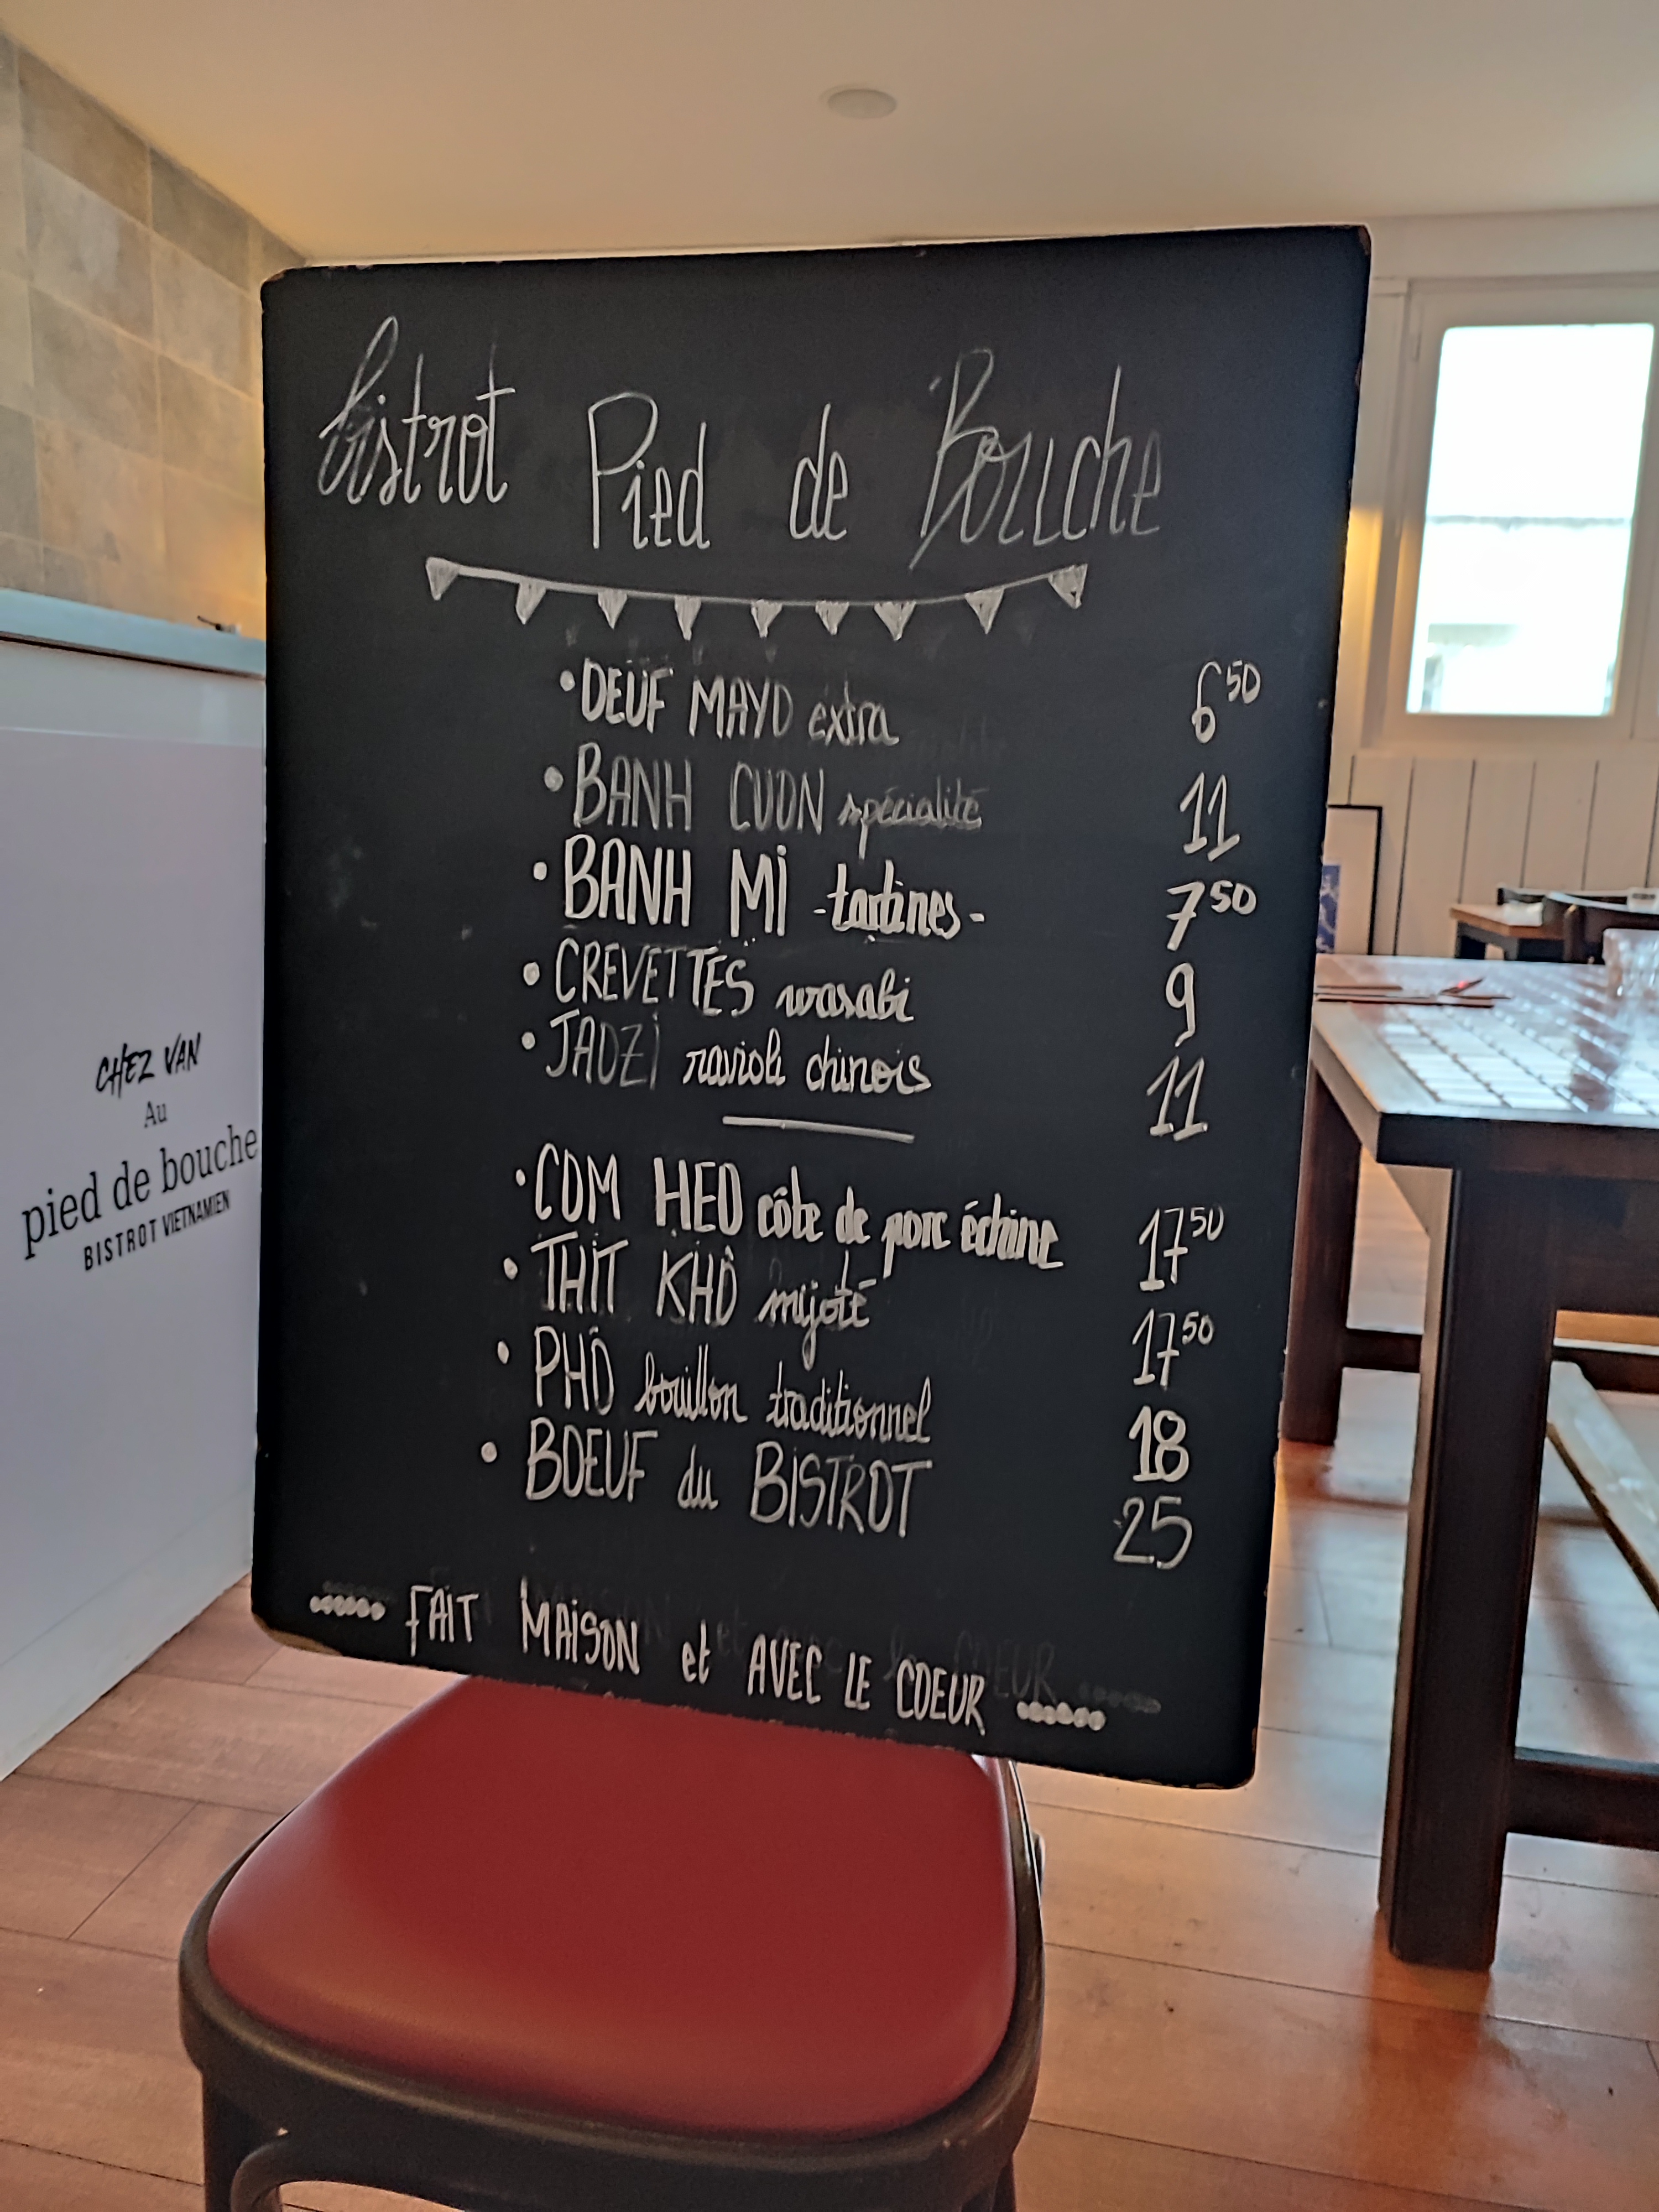 bistrot Pied de Bouche
• OEUF MAYO extra 6⁵⁰
• BANH CUON spécialité 11
• BANH Mi - tartines - 7⁵⁰
• CREVETTES wasabi 9
• JAOZi ravioli chinois 11
• COM HEO côte de porc échine 17⁵⁰
• THIT KHÔ mijoté 17⁵⁰
• PHÔ bouillon traditionnel 18
• BOEUF du BISTROT 25
FAIT MAiSON et AVEC LE COEUR
CHEZ VAN
Au
pied de bouche
BISTROT VIETNAMIEN